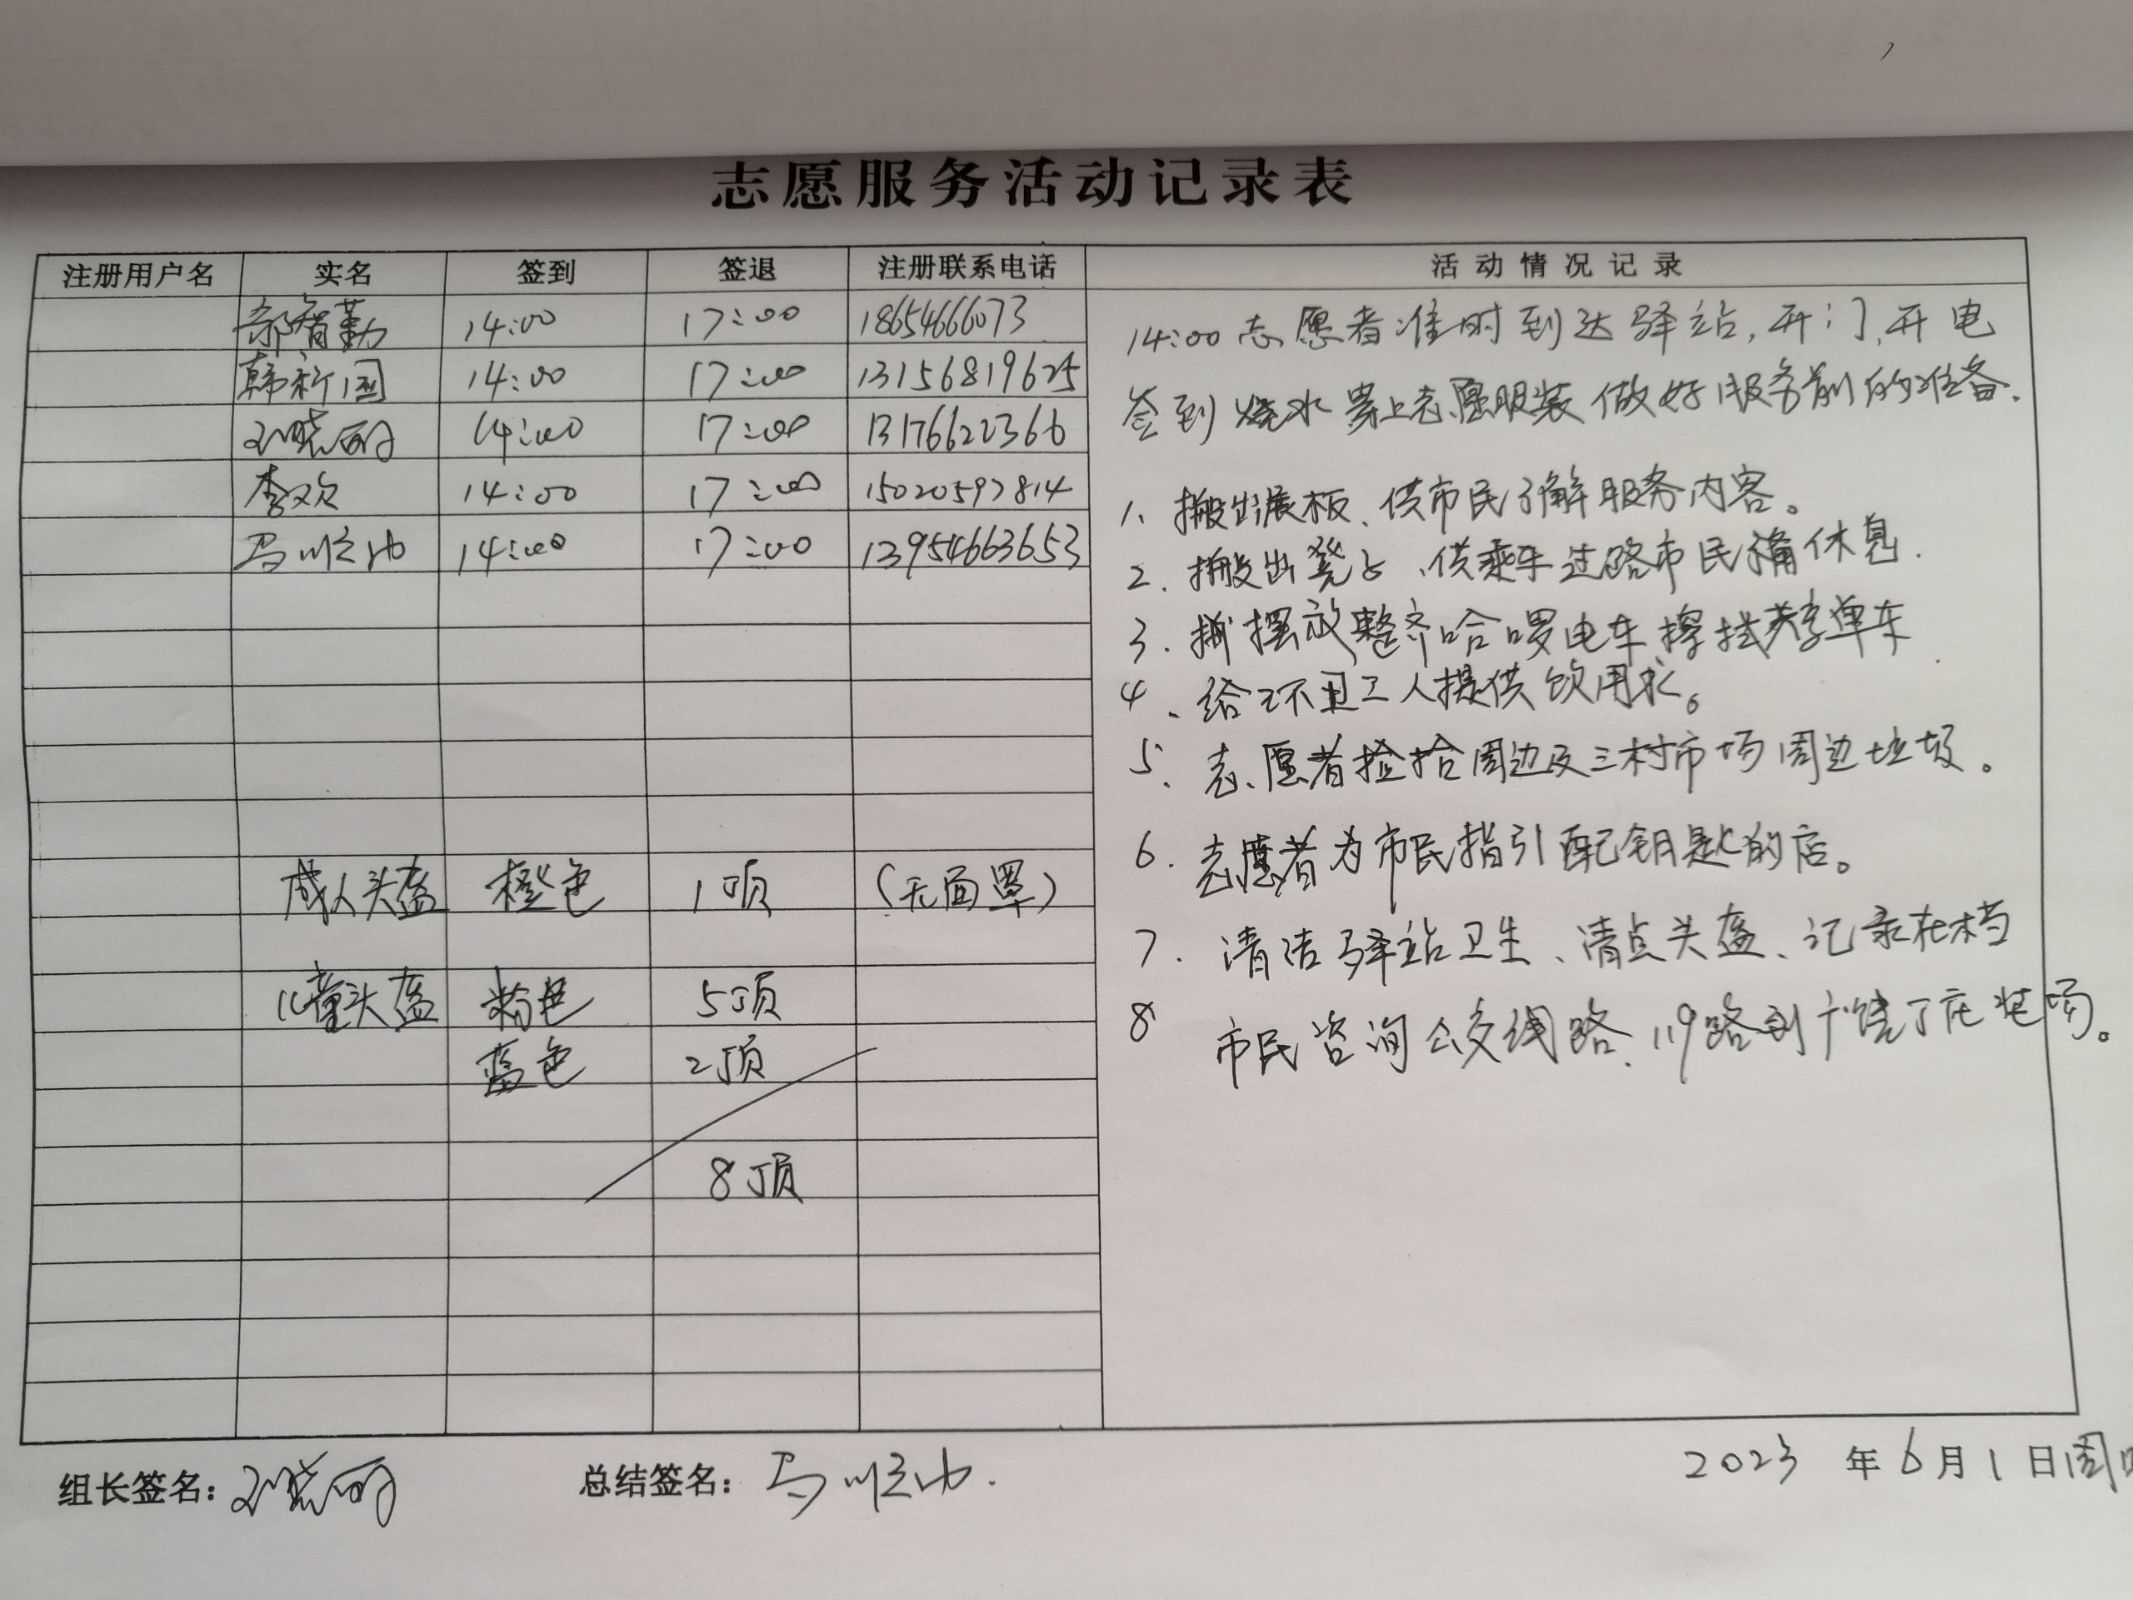 志愿服务活动记录表
注册用户名 实名 签到 签退 注册联系电话 活动情况记录
郭智勤 14:00 17:00 18654666073
韩新国 14:00 17:00 13156819625
刘晓丽 14:00 17:00 13176622366
李欢 14:00 17:00 15020597814
马顺 14:00 17:00 13954663653
成人头盔 橙色 1顶 (无面罩)
儿童头盔 粉色 5顶
蓝色 2顶
8顶
14:00 志愿者准时到达驿站,开门,开电
签到 烧水 穿上志愿服装 做好服务前的准备.
1、搬出展板、供市民了解服务内容。
2. 搬出凳子、供乘车过路市民 休息.
3. 摆放整齐哈啰电车 擦拭共享单车
4、给环卫工人提供饮用水。
5、志愿者捡拾周边及三村市场周边垃圾。
6. 志愿者为市民指引配钥匙的店。
7. 清洁驿站卫生、清点头盔、记录在档
8 市民咨询公交线路、119路到广饶丁庄 场。
组长签名: 刘晓丽 总结签名: 马顺 2023 年 6 月 1 日 周